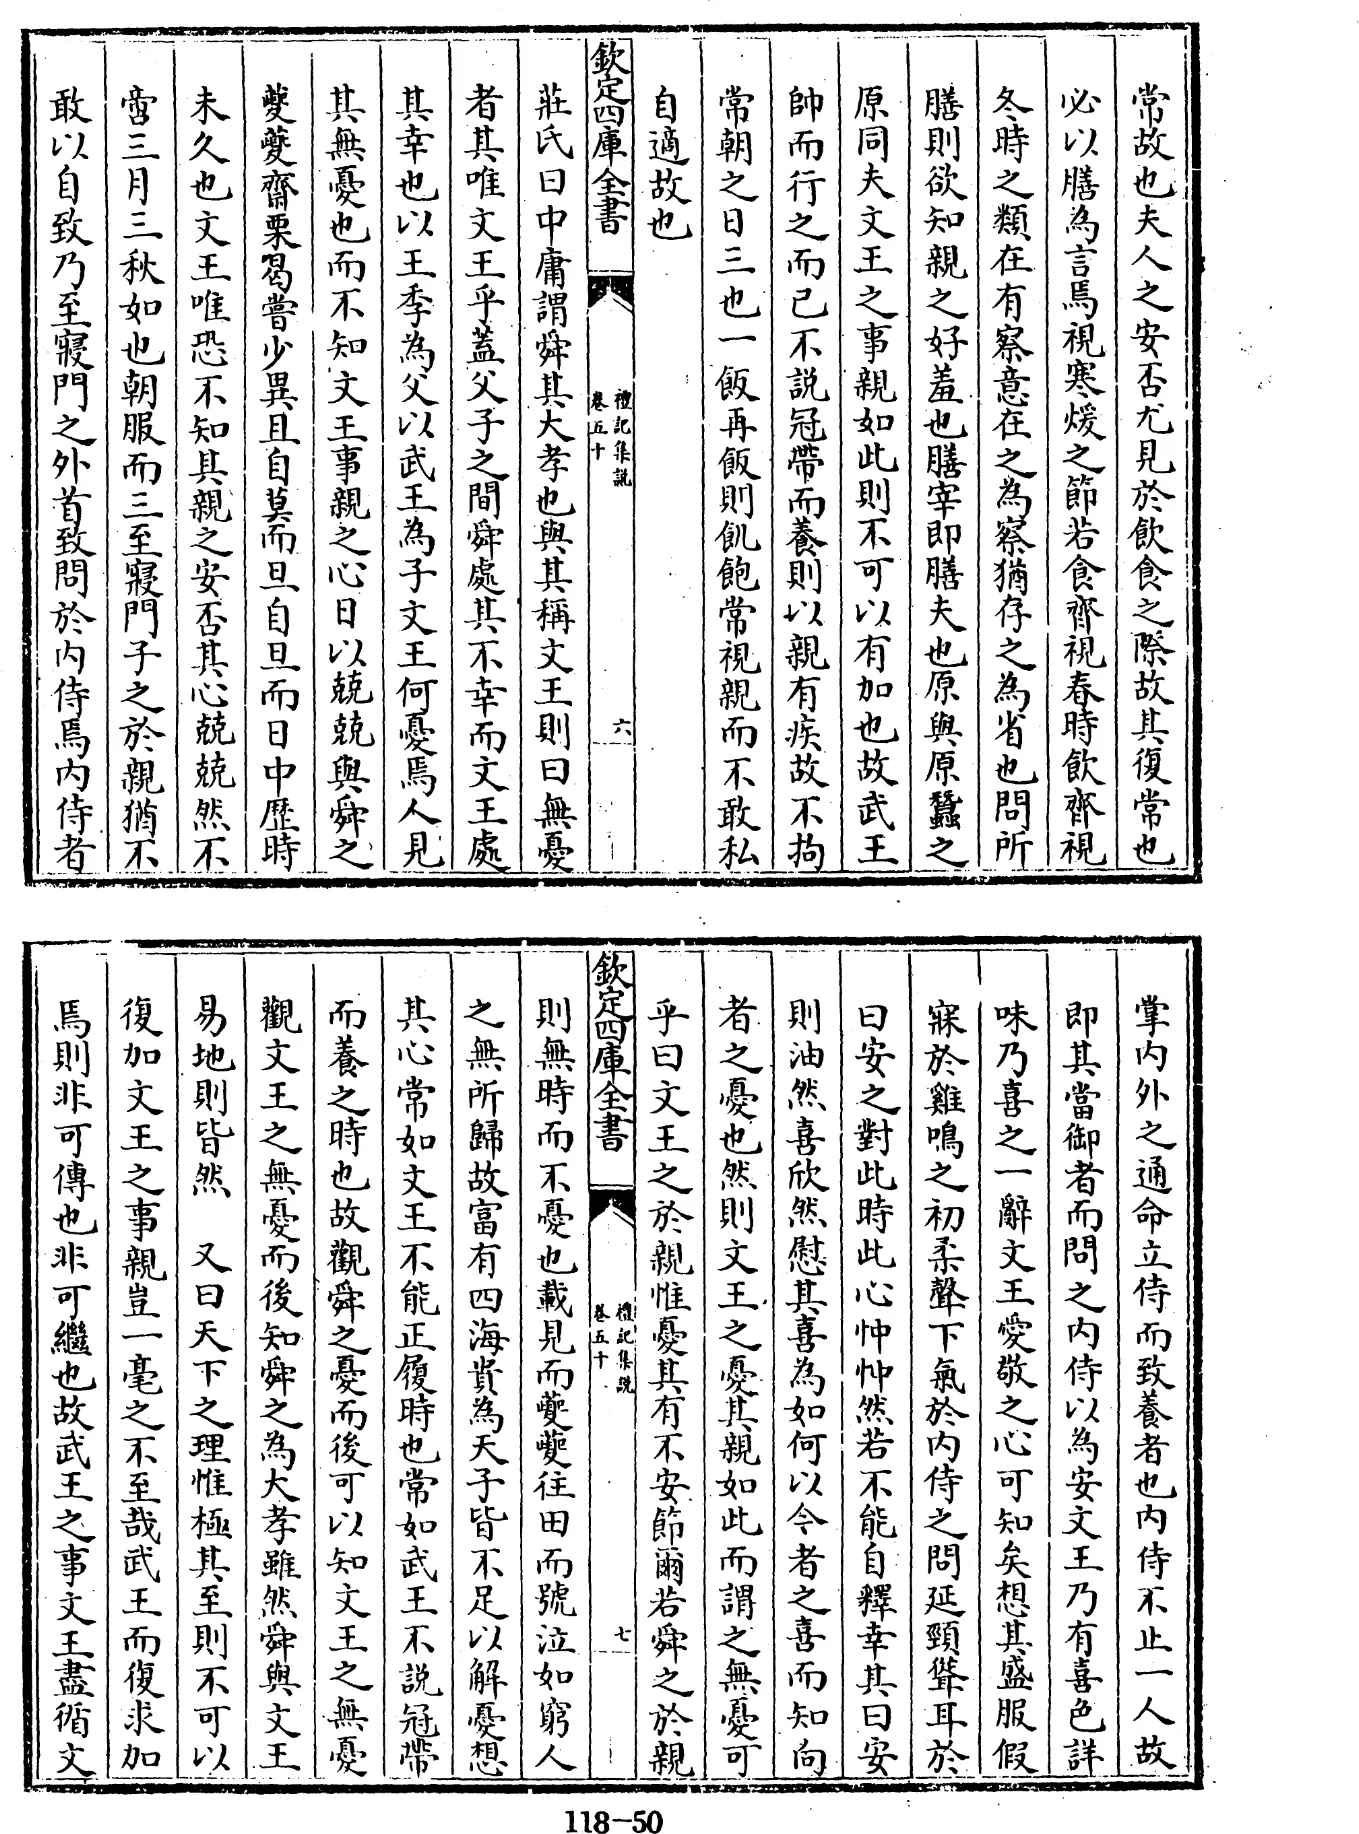 常故也夫人之安否尤見於飲食之際故其復常也
必以膳為言焉視寒煖之節若食齊視春時飲齊視
冬時之類在有察意在之為察猶存之為省也問所
膳則欲知親之好羞也膳宰即膳夫也原與原蠶之
原同夫文王之事親如此則不可以有加也故武王
帥而行之而已不說冠帶而養則以親有疾故不拘
常朝之日三也一飯再飯則飢飽常視親而不敢私
自適故也
欽定四庫全書
禮記集說
卷五十
六
莊氏曰中庸謂舜其大孝也與其稱文王則曰無憂
者其唯文王乎蓋父子之間舜處其不幸而文王處
其幸也以王季為父以武王為子文王何憂焉人見
其無憂也而不知文王事親之心日以兢兢與舜之
夔夔齋栗曷嘗少異且自莫而旦自旦而日中歷時
未久也文王唯恐不知其親之安否其心兢兢然不
啻三月三秋如也朝服而三至寢門子之於親猶不
敢以自致乃至寢門之外首致問於內侍焉內侍者
掌內外之通命立侍而致養者也內侍不止一人故
即其當御者而問之內侍以為安文王乃有喜色詳
味乃喜之一辭文王愛敬之心可知矣想其盛服假
寐於雞鳴之初柔聲下氣於內侍之問延頸聳耳於
曰安之對此時此心忡忡然若不能自釋幸其曰安
則油然喜欣然慰其喜為如何以今者之喜而知向
者之憂也然則文王之憂其親如此而謂之無憂可
乎曰文王之於親惟憂其有不安節爾若舜之於親
欽定四庫全書
禮記集說
卷五十
七
則無時而不憂也載見而夔夔往田而號泣如窮人
之無所歸故富有四海貴為天子皆不足以解憂想
其心常如文王不能正履時也常如武王不說冠帶
而養之時也故觀舜之憂而後可以知文王之無憂
觀文王之無憂而後知舜之為大孝雖然舜與文王
易地則皆然　又曰天下之理惟極其至則不可以
復加文王之事親豈一毫之不至哉武王而復求加
焉則非可傳也非可繼也故武王之事文王盡循文
118-50